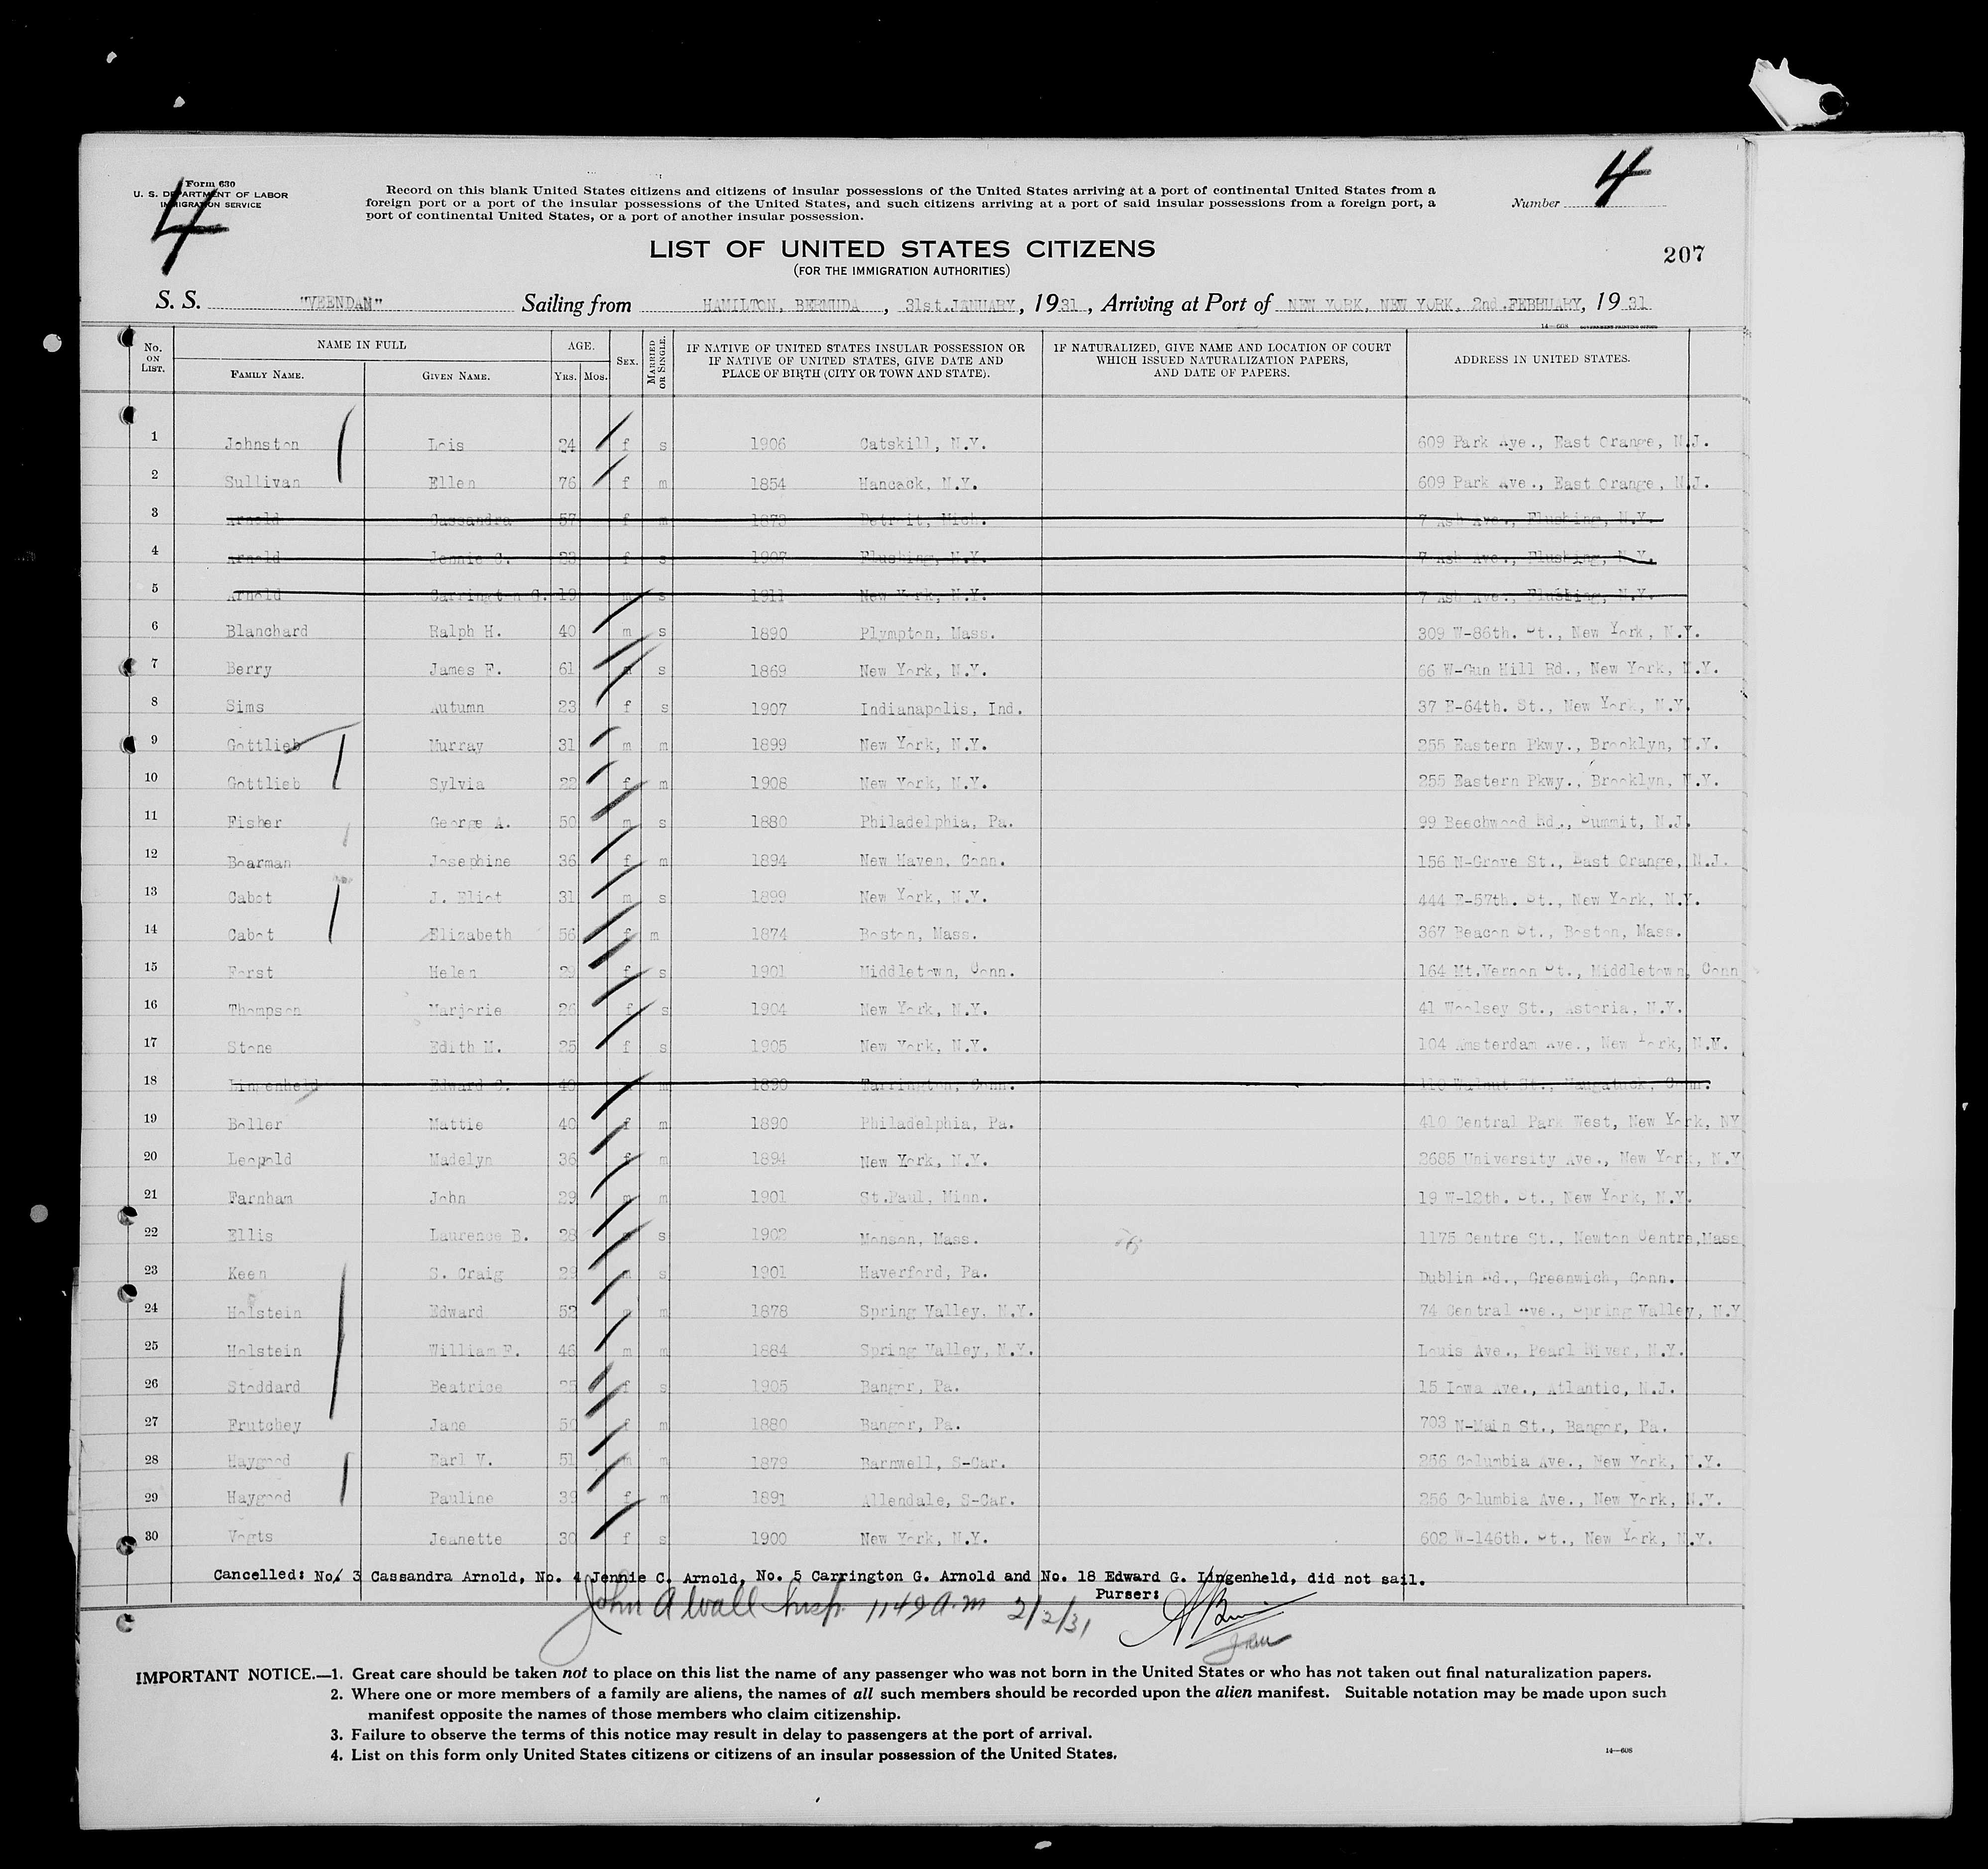 Form 630
U. S. DEPARTMENT OF LABOR
IMMIGRATION SERVICE
4
Record on this blank United States citizens and citizens of insular possessions of the United States arriving at a port of continental United States from a
foreign port or a port of the insular possessions of the United States, and such citizens arriving at a port of said insular possessions from a foreign port, a
port of continental United States, or a port of another insular possession.
Number 4
LIST OF UNITED STATES CITIZENS
(FOR THE IMMIGRATION AUTHORITIES)
207
S. S. "VEENDAM" Sailing from HAMILTON, BERMUDA, 31st.JANUARY, 1931, Arriving at Port of NEW YORK, NEW YORK, 2nd.FEBRUARY, 1931
14—608 GOVERNMENT PRINTING OFFICE
No. ON LIST. NAME IN FULL FAMILY NAME. GIVEN NAME. AGE. YRS. MOS. SEX. MARRIED OR SINGLE. IF NATIVE OF UNITED STATES INSULAR POSSESSION OR IF NATIVE OF UNITED STATES, GIVE DATE AND PLACE OF BIRTH (CITY OR TOWN AND STATE). IF NATURALIZED, GIVE NAME AND LOCATION OF COURT WHICH ISSUED NATURALIZATION PAPERS, AND DATE OF PAPERS. ADDRESS IN UNITED STATES.
1 Johnston Lois 24 f s 1906 Catskill, N.Y. 609 Park Ave., East Orange, N.J.
2 Sullivan Ellen 76 f m 1854 Hancock, N.Y. 609 Park Ave., East Orange, N.J.
3 Arnold Cassandra 57 f m 1873 Detroit, Mich. 7 Ash Ave., Flushing, N.Y.
4 Arnold Jennie C. 23 f s 1907 Flushing, N.Y. 7 Ash Ave., Flushing, N.Y.
5 Arnold Carrington G. 19 m s 1911 New York, N.Y. 7 Ash Ave., Flushing, N.Y.
6 Blanchard Ralph H. 40 m s 1890 Plympton, Mass. 309 W-86th. St., New York, N.Y.
7 Berry James F. 61 m s 1869 New York, N.Y. 66 W-Gun Hill Rd., New York, N.Y.
8 Sims Autumn 23 f s 1907 Indianapolis, Ind. 37 E-64th. St., New York, N.Y.
9 Gottlieb Murray 31 m m 1899 New York, N.Y. 255 Eastern Pkwy., Brooklyn, N.Y.
10 Gottlieb Sylvia 22 f m 1908 New York, N.Y. 255 Eastern Pkwy., Brooklyn, N.Y.
11 Fisher George A. 50 m s 1880 Philadelphia, Pa. 99 Beechwood Rd., Summit, N.J.
12 Boarman Josephine 36 f m 1894 New Haven, Conn. 156 N-Grove St., East Orange, N.J.
13 Cabot J. Eliot 31 m s 1899 New York, N.Y. 444 E-57th. St., New York, N.Y.
14 Cabot Elizabeth 56 f m 1874 Boston, Mass. 367 Beacon St., Boston, Mass.
15 Forst Helen 29 f s 1901 Middletown, Conn. 164 Mt.Vernon St., Middletown, Conn
16 Thompson Marjorie 26 f s 1904 New York, N.Y. 41 Woolsey St., Astoria, N.Y.
17 Stone Edith M. 25 f s 1905 New York, N.Y. 104 Amsterdam Ave., New York, N.Y.
18 Lingenheld Edward G. 40 m 1890 Torrington, Conn. Walnut St., Naugatuck, Conn.
19 Boller Mattie 40 f m 1890 Philadelphia, Pa. 410 Central Park West, New York, NY
20 Leopold Madelyn 36 f m 1894 New York, N.Y. 2685 University Ave., New York, N.Y
21 Farnham John 29 m m 1901 St.Paul, Minn. 19 W-12th. St., New York, N.Y.
22 Ellis Laurence B. 28 m s 1902 Monson, Mass. 1175 Centre St., Newton Centre,Mass
23 Keen S. Craig 29 m s 1901 Haverford, Pa. Dublin Rd., Greenwich, Conn.
24 Holstein Edward 52 m m 1878 Spring Valley, N.Y. 74 Central Ave., Spring Valley, N.Y
25 Holstein William F. 46 m m 1884 Spring Valley, N.Y. Louis Ave., Pearl River, N.Y.
26 Stoddard Beatrice 25 f s 1905 Bangor, Pa. 15 Iowa Ave., Atlantic, N.J.
27 Frutchey Jane 50 f m 1880 Bangor, Pa. 703 N-Main St., Bangor, Pa.
28 Haygood Earl V. 51 m m 1879 Barnwell, S-Car. 256 Columbia Ave., New York, N.Y.
29 Haygood Pauline 39 f m 1891 Allendale, S-Car. 256 Columbia Ave., New York, N.Y.
30 Vogts Jeanette 30 f s 1900 New York, N.Y. 602 W-146th. St., New York, N.Y.
Cancelled: No. 3 Cassandra Arnold, No. 4 Jennie C. Arnold, No. 5 Carrington G. Arnold and No. 18 Edward G. Lingenheld, did not sail.
Purser:
John A Wall Insp. 1149 a.m 2/2/31
IMPORTANT NOTICE.—1. Great care should be taken not to place on this list the name of any passenger who was not born in the United States or who has not taken out final naturalization papers.
2. Where one or more members of a family are aliens, the names of all such members should be recorded upon the alien manifest. Suitable notation may be made upon such
manifest opposite the names of those members who claim citizenship.
3. Failure to observe the terms of this notice may result in delay to passengers at the port of arrival.
4. List on this form only United States citizens or citizens of an insular possession of the United States.
14—608